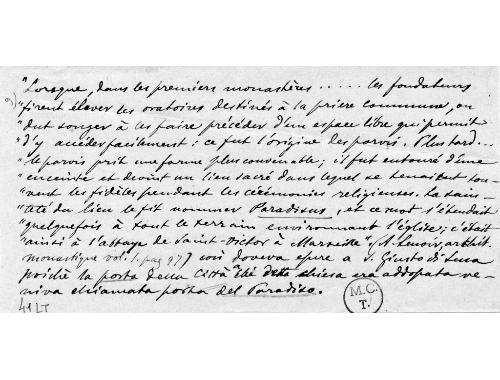 "Lorsque, dans les premiers monastères ..... les fondateurs
9) "firent élever les oratoires destinés à la priere commune, on
"dut songer à les faire précéder d'un espace libre qui permit
"d'y accéder facilement: ce fut l'origine des parvis. Plus tard...
"le parvis prit une forme plus convenable; il fut entouré d'une
"enceinte et devint un lieu sacré dans lequel se tenaient sou-
"vent les fidèles pendant les cérémonies religieuses. La sain-
"teté du lieu le fit nommer Paradisus, et ce mot s'étendait
"quelquefois à tout le terrain environnant l'église; c'était
"ainsi à l'abbaye de Saint-Victor à Marseille" (A. Lenoir, archit.
monastique vol. I. pag 97) così doveva essere a S. Giusto di Susa
poichè la porta della Città che detta chiesa era addossata ve-
niva chiamata porta del Paradiso.
41 LT
M.C.
T.